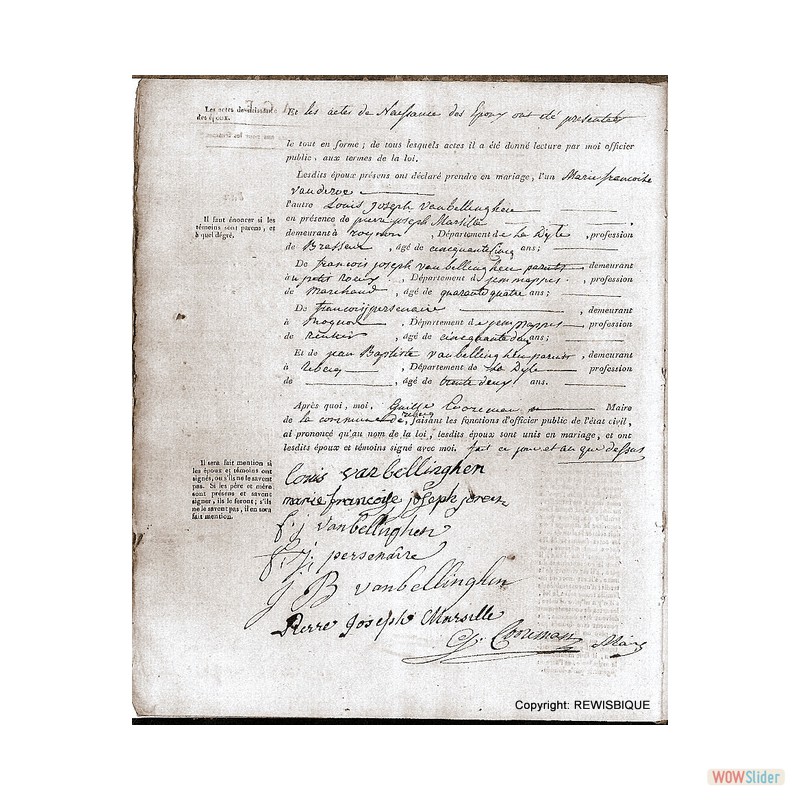 Les actes de naissance
des époux.
Et les actes de Naissance des Epoux ont été presentés
le tout en forme ; de tous lesquels actes il a été donné lecture par moi officier
public, aux termes de la loi.
Lesdits époux présens ont déclaré prendre en mariage, l'un Marie francoise
vanderoe
l'autre Louis joseph vanbellinghen
Il faut énoncer si les
témoins sont parens, et
à quel dégré.
en présence de pierre joseph Marsille
demeurant à , Département de La Dyle , profession
de Brasseur , âgé de cincquante cinq ans ;
De francois joseph vanbellinghen parents demeurant
à petit Roeux , Département de jemmappes , profession
de Marchand , âgé de quarante quatre ans ;
De francois j persenaire , demeurant
à , Département de jemmappes profession
de Rentier , âgé de cincquante deux ans ;
Et de jean Baptiste vanbellinghen parent , demeurant
à rebecq , Département de La Dyle profession
de , âgé de trente deux ans.
Après quoi, moi, Cooreman Maire
de la commune de rebecq , faisant les fonctions d'officier public de l'état civil,
ai prononcé qu'au nom de la loi, lesdits époux sont unis en mariage, et ont
lesdits époux et témoins signé avec moi. fait ce jour et an que dessus
Il sera fait mention si
les époux et témoins ont
signés, ou s'ils ne le savent
pas. Si les père et mère
sont présens et savent
signer, ils le feront ; s'ils
ne le savent pas, il en sera
fait mention.
Louis vanbellinghen
marie francoise joseph
f: j vanbellinghen
f: j: persenaire
J B vanbellinghen
Pierre Joseph Marsille
G. Cooreman Maire
Copyright: REWISBIQUE
WOWSlider